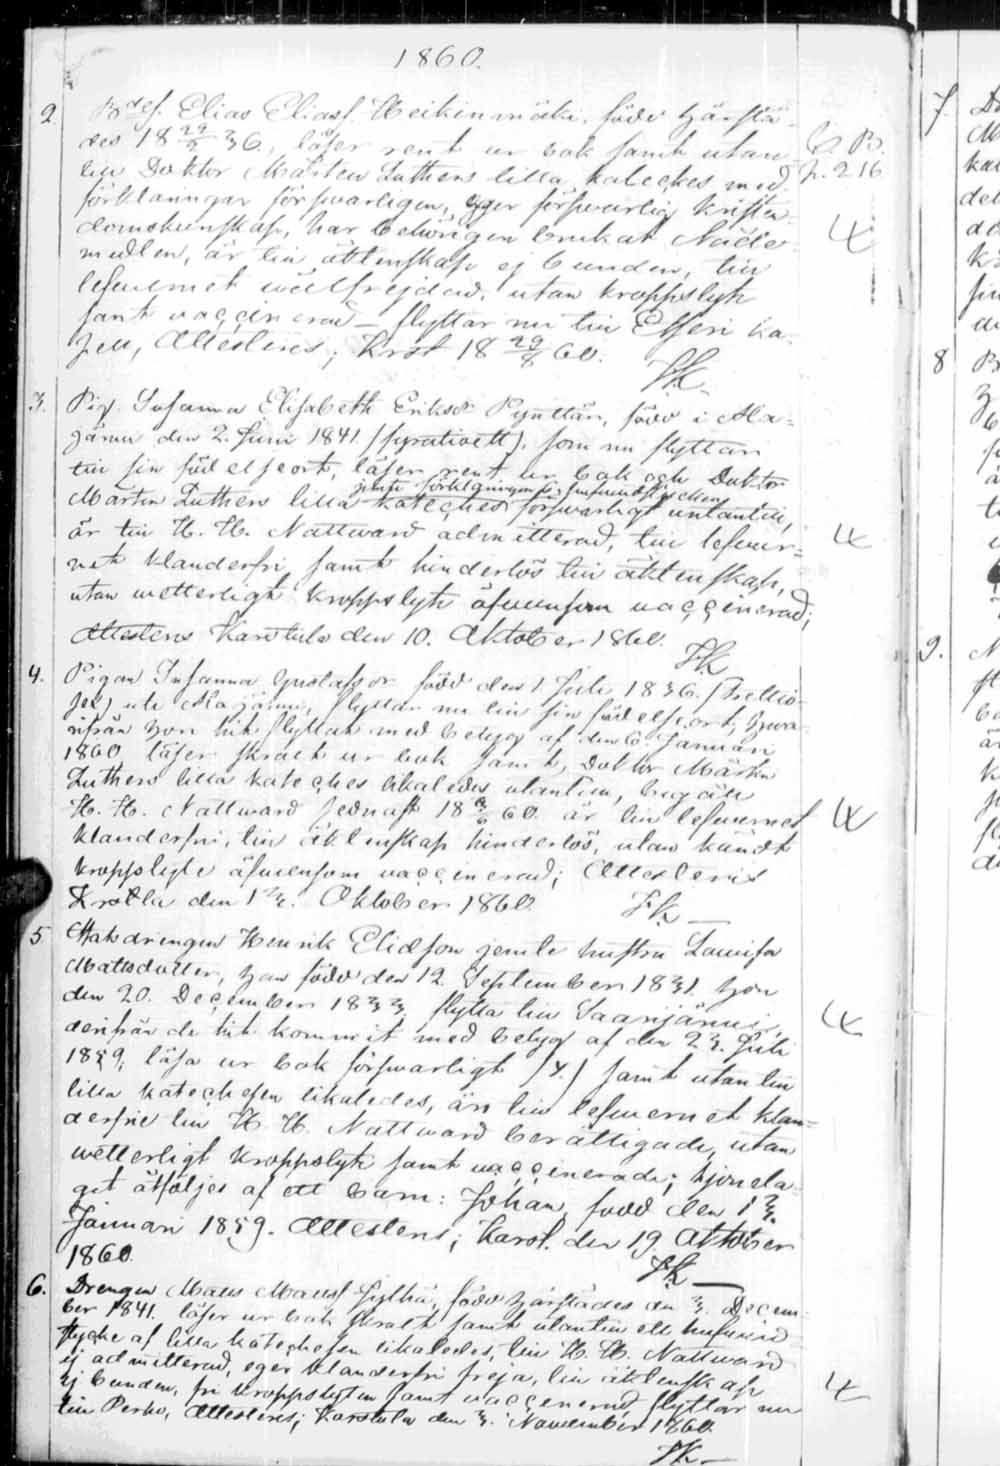 1860.
2. Bdes. Elias Eliass. Heikinmäki, född härstä-
des 18 29/5 36, läser rent ur bok samt utan
till Doktor Mårten Luthers lilla kateches med
förklaringar försvarligen, eger försvarlig kristen-
domskunskap, har behörigen brukat Nåde-
medlen, är till äktenskap ej bunden, till
lefvernet välfrejdad, utan kroppslyte
samt vaccinerad – flyttar nu till Efseri ka-
pell, Attesteras; Krst 18 29/8 60.
C. B.
p. 216
3. Pig. Susanna Elisabeth Eriksdr Pynttäri, född i Ala-
järvi den 2. Juni 1841. som nu flyttar
till sin födelseort, läser rent ur bok och Doktor
Mårten Luthers lilla kateches försvarligt utantill,
är till H. H. Nattvard admitterad, till lefver-
net klanderfri samt hinderlös till äktenskap,
utan vetterligt kroppslyte äfvensom vaccinerad;
Attesteras Karstula den 10. Oktober 1860.
4. Pigan Susanna Gustafsdr född den 1 Juli 1836.
uti Alajärvi, flyttar nu till sin födelseort, hvar-
ifrån hon hit flyttat med betyg af den 6. Januari
1860 läser skralt ur bok samt, Doktor Mårten
Luthers lilla kateches likaledes utantill, begått
H. H. Nattvard sednast 18 60 är till lefvernet
klanderfri, till äktenskap hinderlös, utan kändt
kroppslyte äfvensom vaccinerad; Attesteras
Krstla den 13. Oktober 1860.
5. Statsdrengen Henrik Eliasson jemte hustru Lovisa
Mattsdotter, han född den 12 September 1831. hon
den 20. December 1833, flytta till Saarijärvi,
derifrån de hit kommit med betyg af den 23. Juli
1859; läsa ur bok försvarligt samt utan till
lilla katechesen likaledes, äro till lefvernet klan-
derfrie till H. H. Nattvard berättigade, utan
vetterligt kroppslyte samt vaccinerade; hjonela-
get åtföljes af ett barn: Johan, född den 13.
Januari 1859. Attesteras; Karst. den 19. Oktober
1860.
6. Drengen Mats Matss. född härstädes den 3. Decem-
ber 1841. läser ur bok skralt samt utantill ett hufvud
stycke af lilla katechesen likaledes, till H. H. Nattvard
ej admitterad, eger klanderfri frejd, till äktenskap
ej bunden, fri kroppslyten samt vaccinerad, flyttar nu
till Perho, Attesteras; Karstula den 3. November 1860.
7.
8
9.